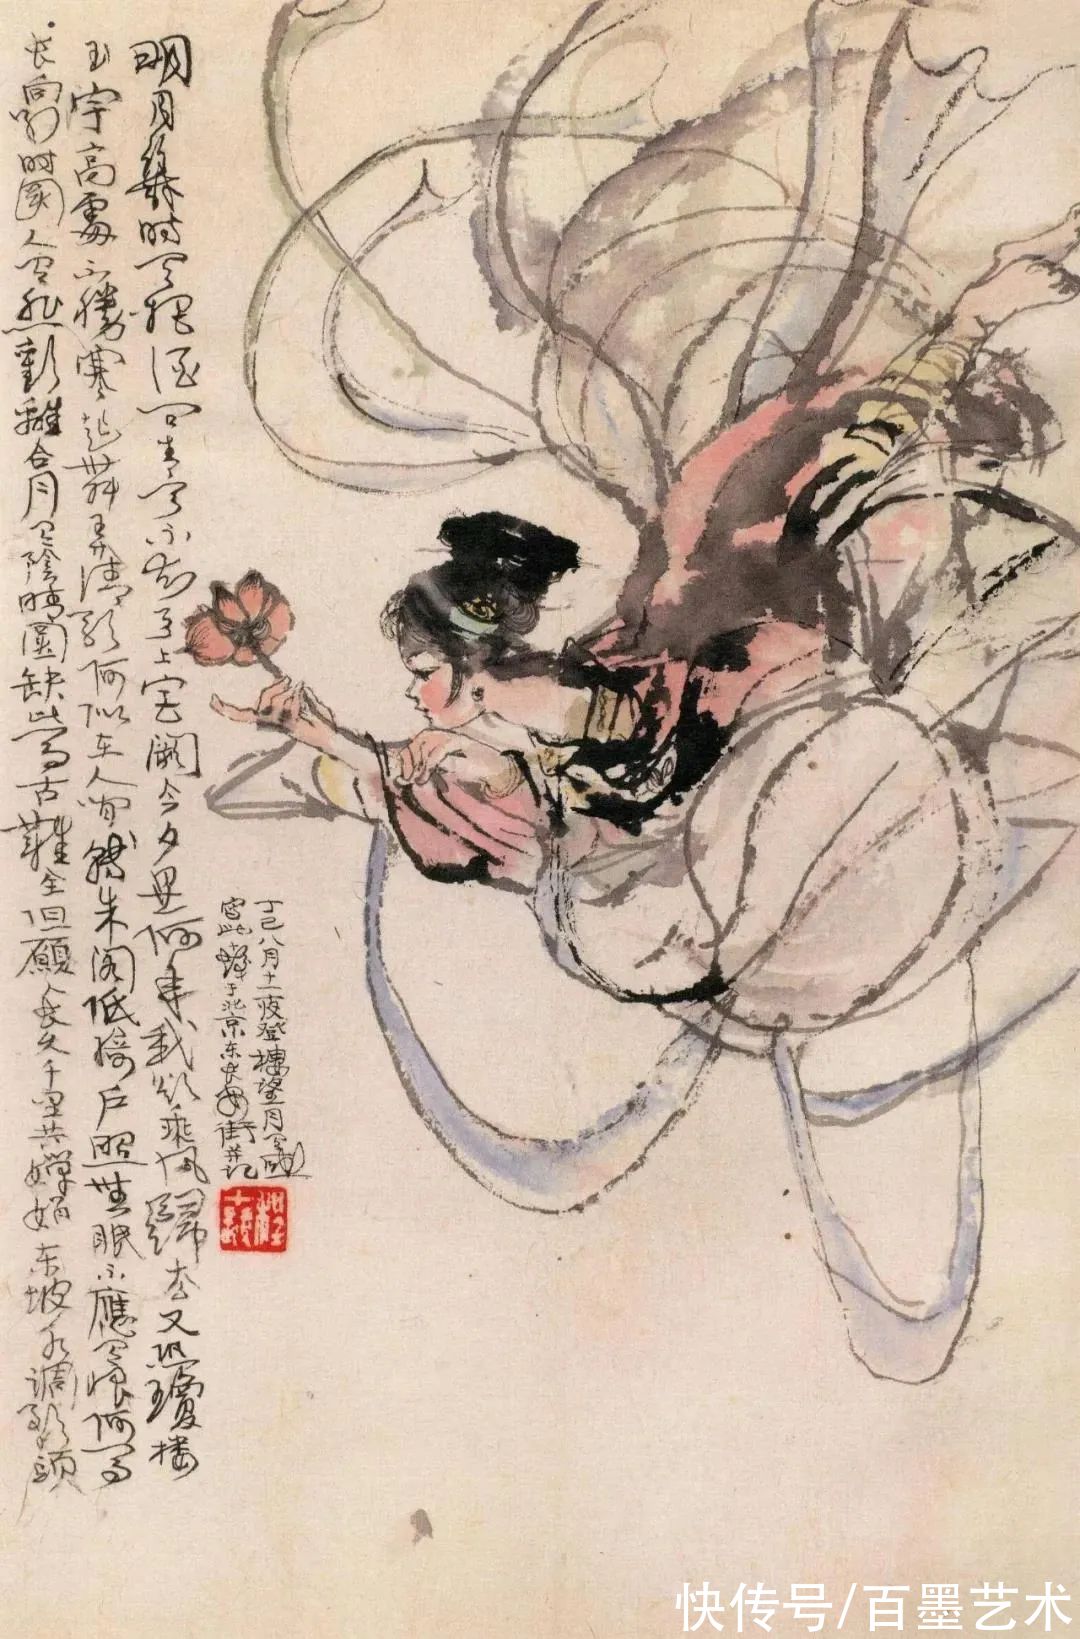 明月幾时有把酒问青天不知天上宫阙今夕是何年我欲乘风歸去又恐瓊楼
玉宇高處不勝寒起舞弄清影何似在人间转朱阁低绮户照無眠不應有恨何事
长向别时圆人有悲歡離合月有陰晴圆缺此事古難全但願人长久千里共嬋娟东坡水调歌頭
丁巳八月夜登樓望月有感
写此于北京东长安街并记
快传号/百墨艺术